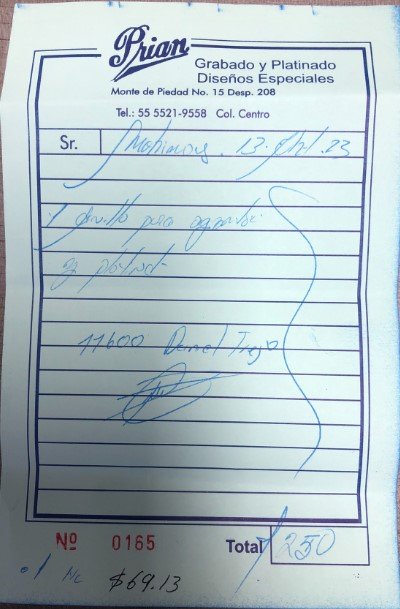 Prian
Grabado y Platinado
Diseños Especiales
Monte de Piedad No. 15 Desp. 208
Tel.: 55 5521-9558 Col. Centro
Sr. 13 23
1 anillo para
y
11600 Daniel Trejo
Nº 0165 Total 250
.1 Nc $69.13